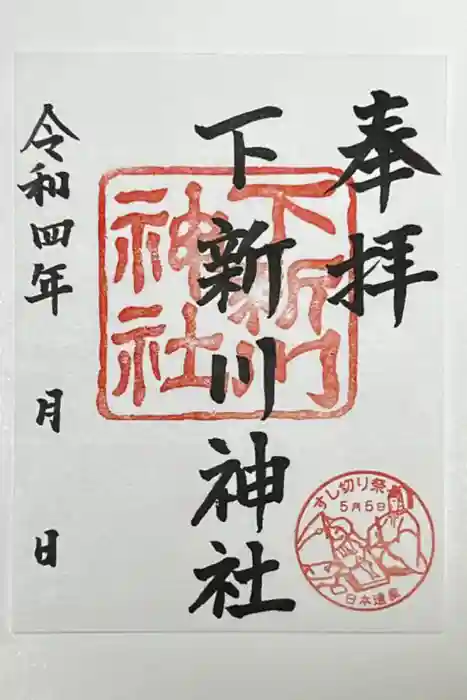 奉拝
下新川神社
下新川
神社
令和四年 月 日
すし切り祭
5月5日
日本遺産